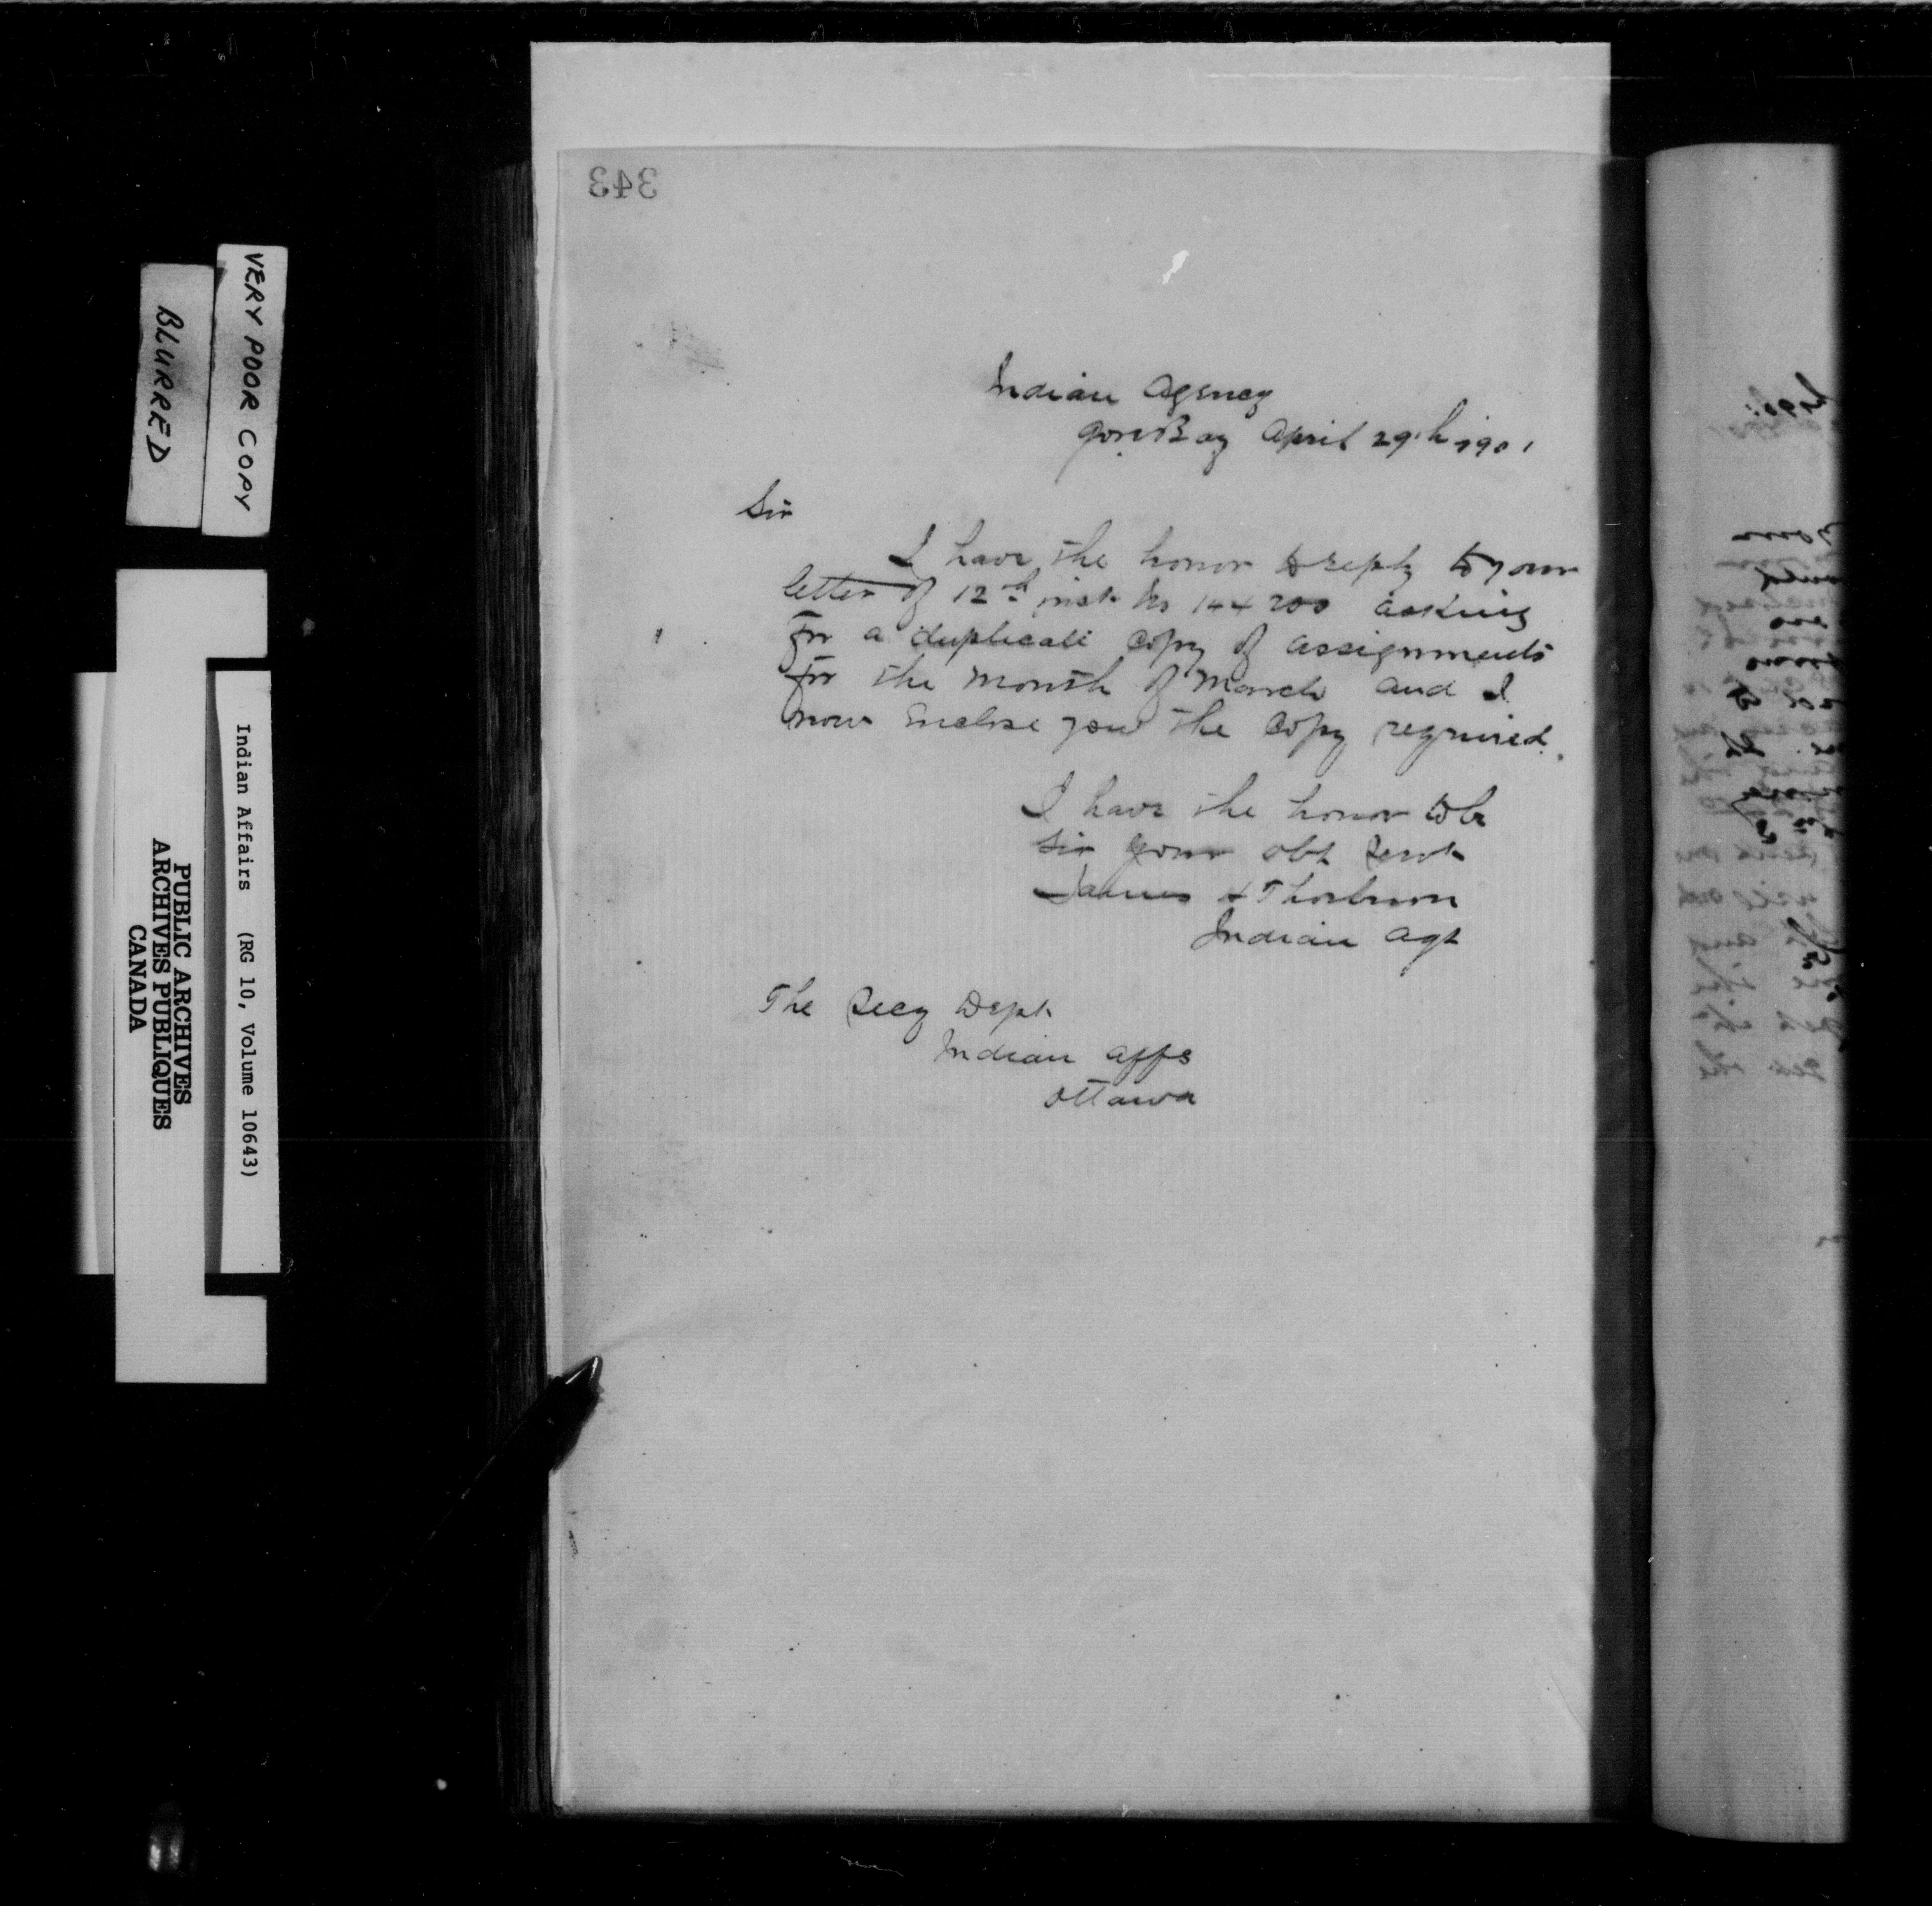 VERY POOR COPY
BLURRED
Indian Affairs (RG 10, Volume 10643)
PUBLIC ARCHIVES
ARCHIVES PUBLIQUES
CANADA
343
Indian Agency
Gore Bay April 29th 1901
Sir
I have the honor to reply to your
letter of 12th inst No 144200 asking
for a duplicate copy of assignments
for the month of March and I
now Enclose you the Copy required.
I have the honor to be
Sir your obt Servt
James H Thorburn
Indian Agt
The Secy Dept
Indian Affs
Ottawa